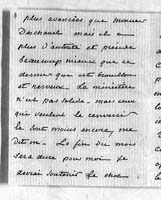 plus avancées que monsieur
Deschanel mais il a eu
plus d'autorité et pense
beaucoup mieux que ce
dernier qui est brouillon
et nerveux. Le ministère
n'est pas solide, mais ceux
qui veulent le renverser
le sont moins encore, me
dit on. La fin du mois
sera dure pour moi. Je
devrai soutenir le choc